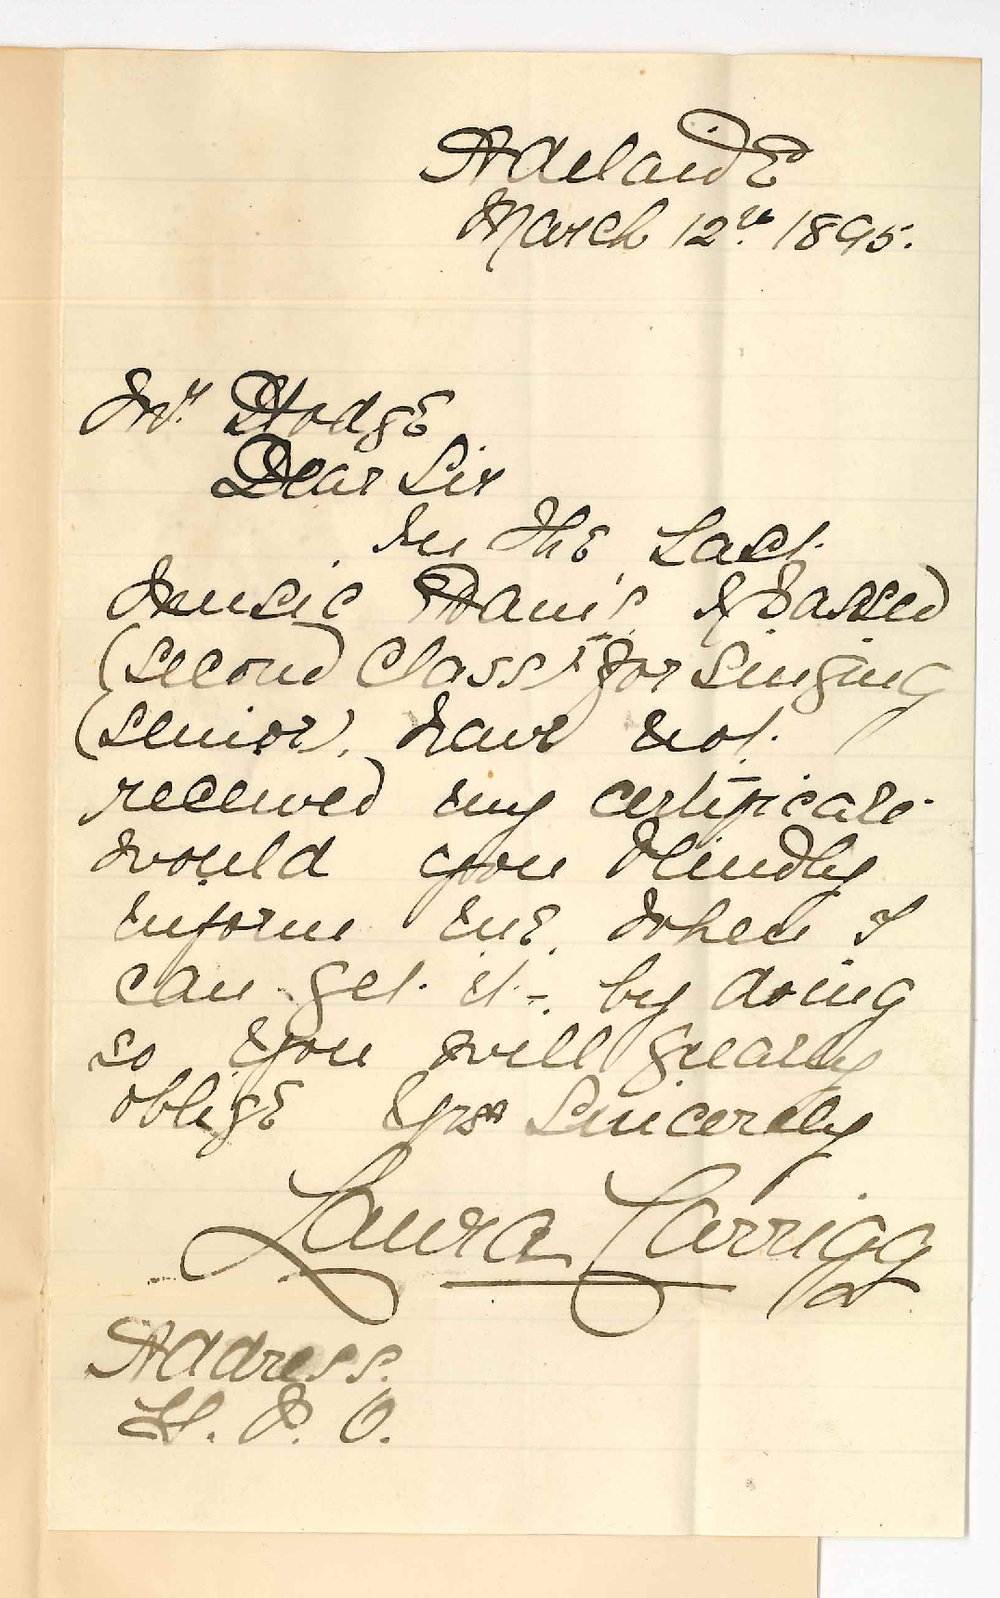 Adelaide
March 12th 1895.
Mr. Hodge
Dear Sir
In the Last
Music Exam's, I Passed
(second) class, for singing
(senior), have not
received my certificate
would you kindly
inform me, when I
can get it -, by doing
so you will greatly
oblige Yrs Sincerely
Laura Carrigg
Address.
G. P. O.